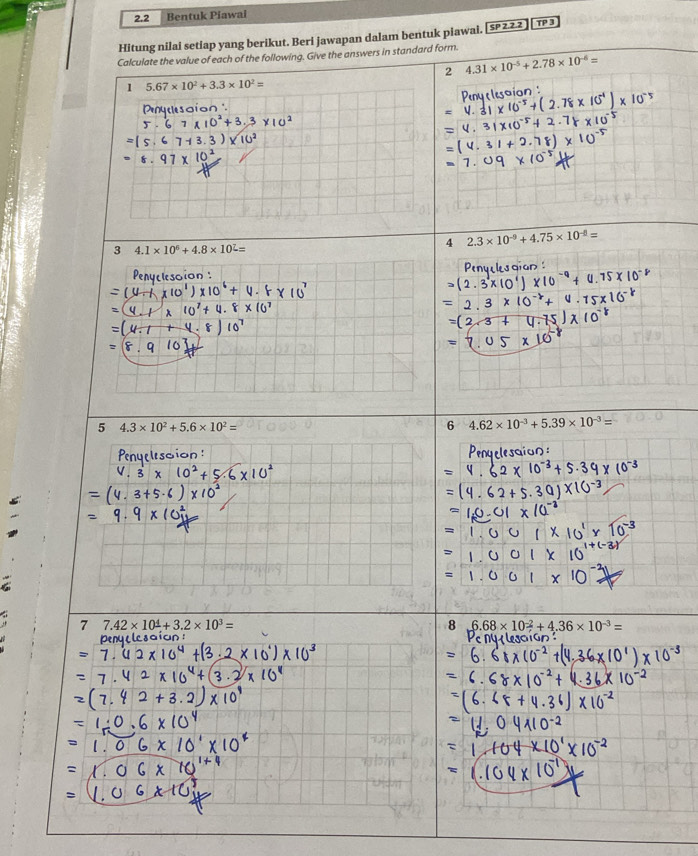 2.2 Bentuk Piawai
Hitung nilai setiap yang berikut. Beri jawapan dalam bentuk piawai. SP 2.2.2 TP 3
Calculate the value of each of the following. Give the answers in standard form.
1 5.67 × 10² + 3.3 × 10² =
Penyelesaian:
5.67 × 10² + 3.3 × 10²
= (5.67 + 3.3) × 10²
= 8.97 × 10²
2 4.31 × 10⁻⁵ + 2.78 × 10⁻⁶ =
Penyelesaian:
= 4.31 × 10⁻⁵ + (2.78 × 10¹) × 10⁻⁵
= 4.31 × 10⁻⁵ + 2.78 × 10⁻⁵
= (4.31 + 2.78) × 10⁻⁵
= 7.09 × 10⁻⁵
3 4.1 × 10⁶ + 4.8 × 10⁷ =
Penyelesaian:
= (4.1 × 10¹) × 10⁶ + 4.8 × 10⁷
= 4.1 × 10⁷ + 4.8 × 10⁷
= (4.1 + 4.8) 10⁷
= 8.9 10⁷
4 2.3 × 10⁻⁹ + 4.75 × 10⁻⁸ =
Penyelesaian:
= (2.3 × 10¹) × 10⁻⁹ + 4.75 × 10⁻⁸
= 2.3 × 10⁻⁸ + 4.75 × 10⁻⁸
= (2.3 + 4.75) × 10⁻⁸
= 7.05 × 10⁻⁸
5 4.3 × 10² + 5.6 × 10² =
Penyelesaian:
4.3 × 10² + 5.6 × 10²
= (4.3 + 5.6) × 10²
= 9.9 × 10²
6 4.62 × 10⁻³ + 5.39 × 10⁻³ =
Penyelesaian:
= 4.62 × 10⁻³ + 5.39 × 10⁻³
= (4.62 + 5.39) × 10⁻³
= 10.01 × 10⁻³
= 1.001 × 10¹ × 10⁻³
= 1.001 × 10¹⁺⁽⁻³⁾
= 1.001 × 10⁻²
7 7.42 × 10⁴ + 3.2 × 10³ =
penyelesaian:
= 7.42 × 10⁴ + (3.2 × 10¹) × 10³
= 7.42 × 10⁴ + 3.2 × 10⁴
= (7.42 + 3.2) × 10⁴
= 10.6 × 10⁴
= 1.06 × 10¹ × 10⁴
= 1.06 × 10¹⁺⁴
= 1.06 × 10⁵
8 6.68 × 10⁻² + 4.36 × 10⁻³ =
Penyelesaian:
= 6.68 × 10⁻² + (4.36 × 10¹) × 10⁻³
= 6.68 × 10⁻² + 4.36 × 10⁻²
= (6.68 + 4.36) × 10⁻²
= 11.04 × 10⁻²
= 1.104 × 10¹ × 10⁻²
= 1.104 × 10⁻¹